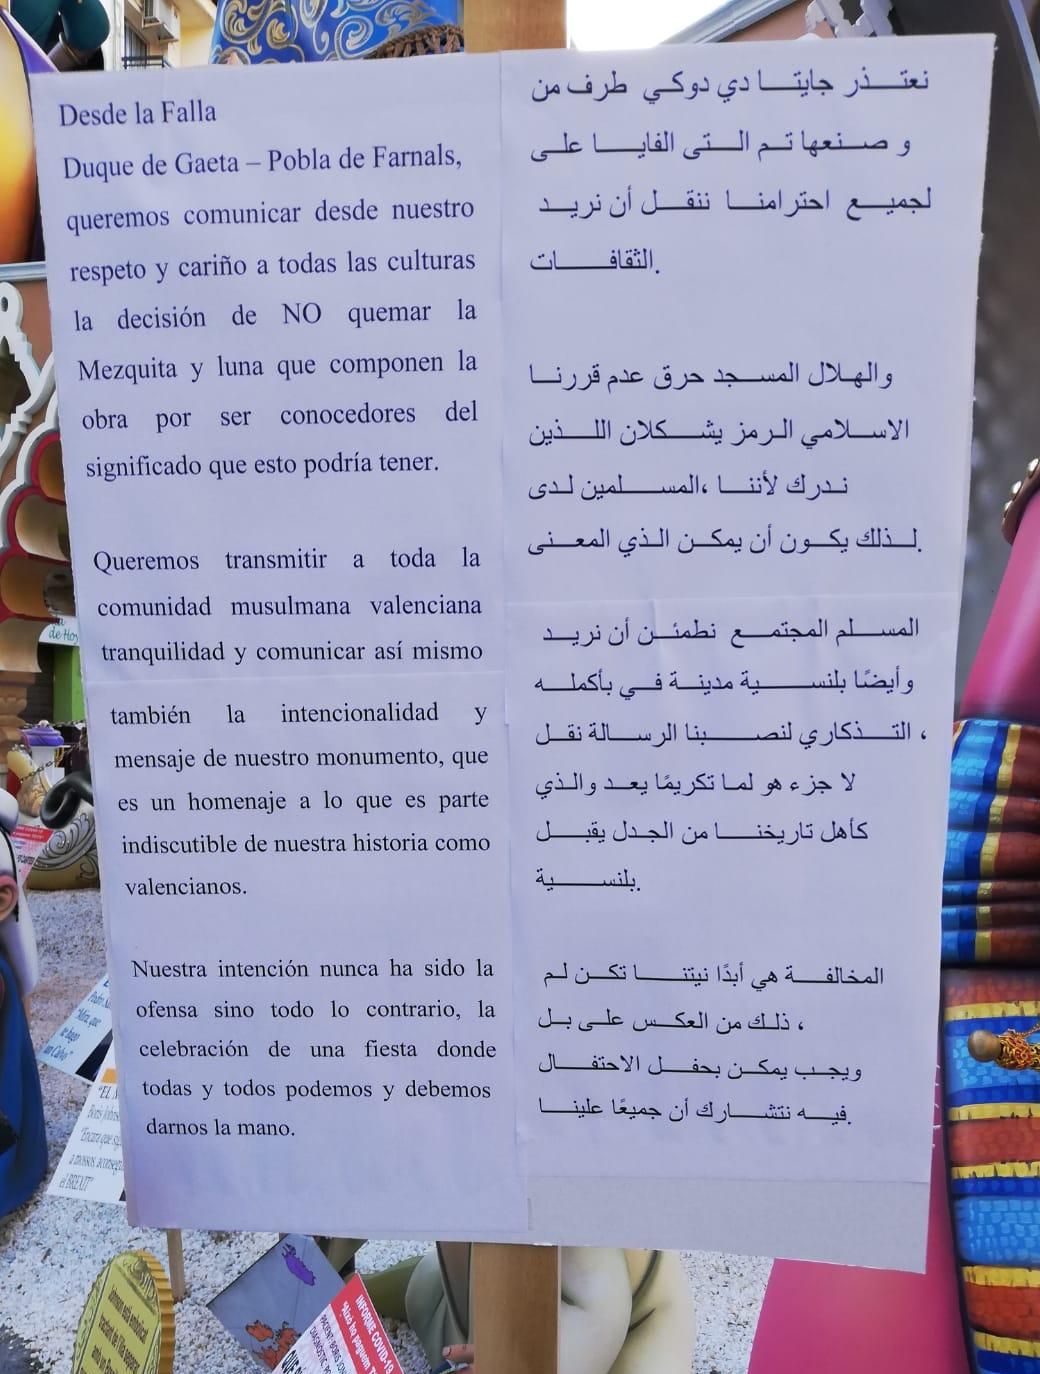 Desde la Falla
Duque de Gaeta – Pobla de Farnals,
queremos comunicar desde nuestro
respeto y cariño a todas las culturas
la decisión de NO quemar la
Mezquita y luna que componen la
obra por ser conocedores del
significado que esto podría tener.
Queremos transmitir a toda la
comunidad musulmana valenciana
tranquilidad y comunicar así mismo
también la intencionalidad y
mensaje de nuestro monumento, que
es un homenaje a lo que es parte
indiscutible de nuestra historia como
valencianos.
Nuestra intención nunca ha sido la
ofensa sino todo lo contrario, la
celebración de una fiesta donde
todas y todos podemos y debemos
darnos la mano.
نعتـــذر جايتـــا دي دوكـي طرف من
و صـــنعها تـم الـــتى الفايـــا علـى
لجميـــع احترامنـــا ننقـــل أن نريـــد
الثقافـــات.
والهـلال المســـجد حرق عدم قررنـــا
الاســـلامي الـرمز يشـــكلان اللـــذين
نـدرك لأننـــا ،المســـلمين لـدى
لـــذلك يكـــون أن يمكـــن الـذي المعـــنى.
المســـلم المجتمـــع نطمئـــن أن نريـــد
وأيضًا بلنســـية مدينـــة فـــي بأكملـــه
، التـــذكاري لنصـــبنا الرســـالة نقـــل
لا جزء هو لمـا تكريمًا يعـــد والـذي
كأهل تاريخنـــا من الجـدل يقبـــل
بلنســـية.
المخالفـــة هي أبدًا نيتنـــا تكـــن لـم
، ذلـك من العكـــس علـــى بـــل
ويجـــب يمكـــن بحفـــل الاحتفـــال
فيـــه نتشـــارك أن جميعًا علينـــا.
de Hoy
"EL
el BREXIT"
INFORME COVID-19